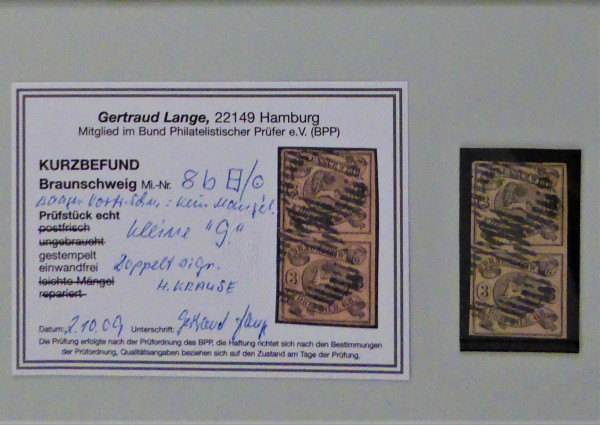 Gertraud Lange, 22149 Hamburg
Mitglied im Bund Philatelistischer Prüfer e.V. (BPP)
KURZBEFUND
Braunschweig Mi.-Nr. 8b
kein Mängel
Prüfstück echt
postfrisch
ungebraucht
kleine "9"
gestempelt
einwandfrei
doppelt sign.
leichte Mängel
H. KRAUSE
repariert
Datum: 2.10.09 Unterschrift: Gertraud Lange
Die Prüfung erfolgte nach der Prüfordnung des BPP, die Haftung richtet sich nach den Bestimmungen
der Prüfordnung, Qualitätsangaben beziehen sich auf den Zustand am Tage der Prüfung.
3
3